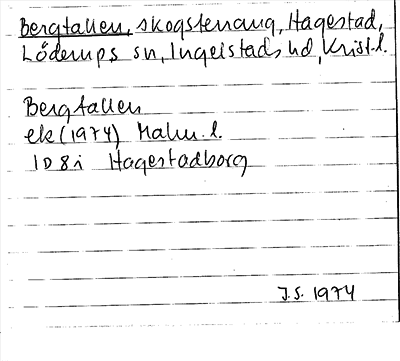 Bergtallen, skogsterräng, Hagestad,
Löderups sn, Ingelstads hd, Krist.l.
Bergtallen
ek (1974) Malm. l.
1D8i Hagestadborg
J.S. 1974